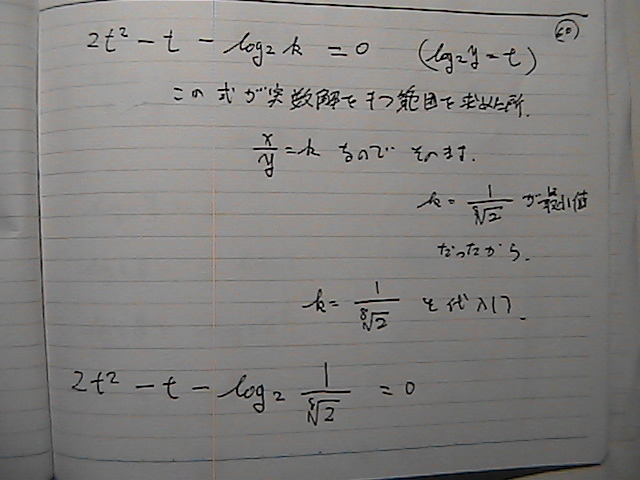 60
2t² - t - log₂k = 0 (log₂y = t)
この式が実数解をもつ範囲を求めた所.
x/y = k なので そのまま.
k = 1/⁸√2 が最小値
だったから.
k = 1/⁸√2 を代入して.
2t² - t - log₂ 1/⁸√2 = 0